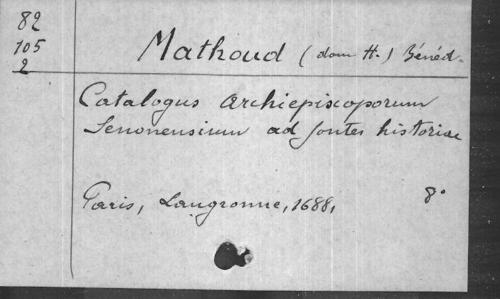 82
105
2
Mathoud (dom H.) Bénéd.
Catalogus archiepiscoporum
Senonensium ad fontes historiae
Paris, Langronne, 1688, 8°